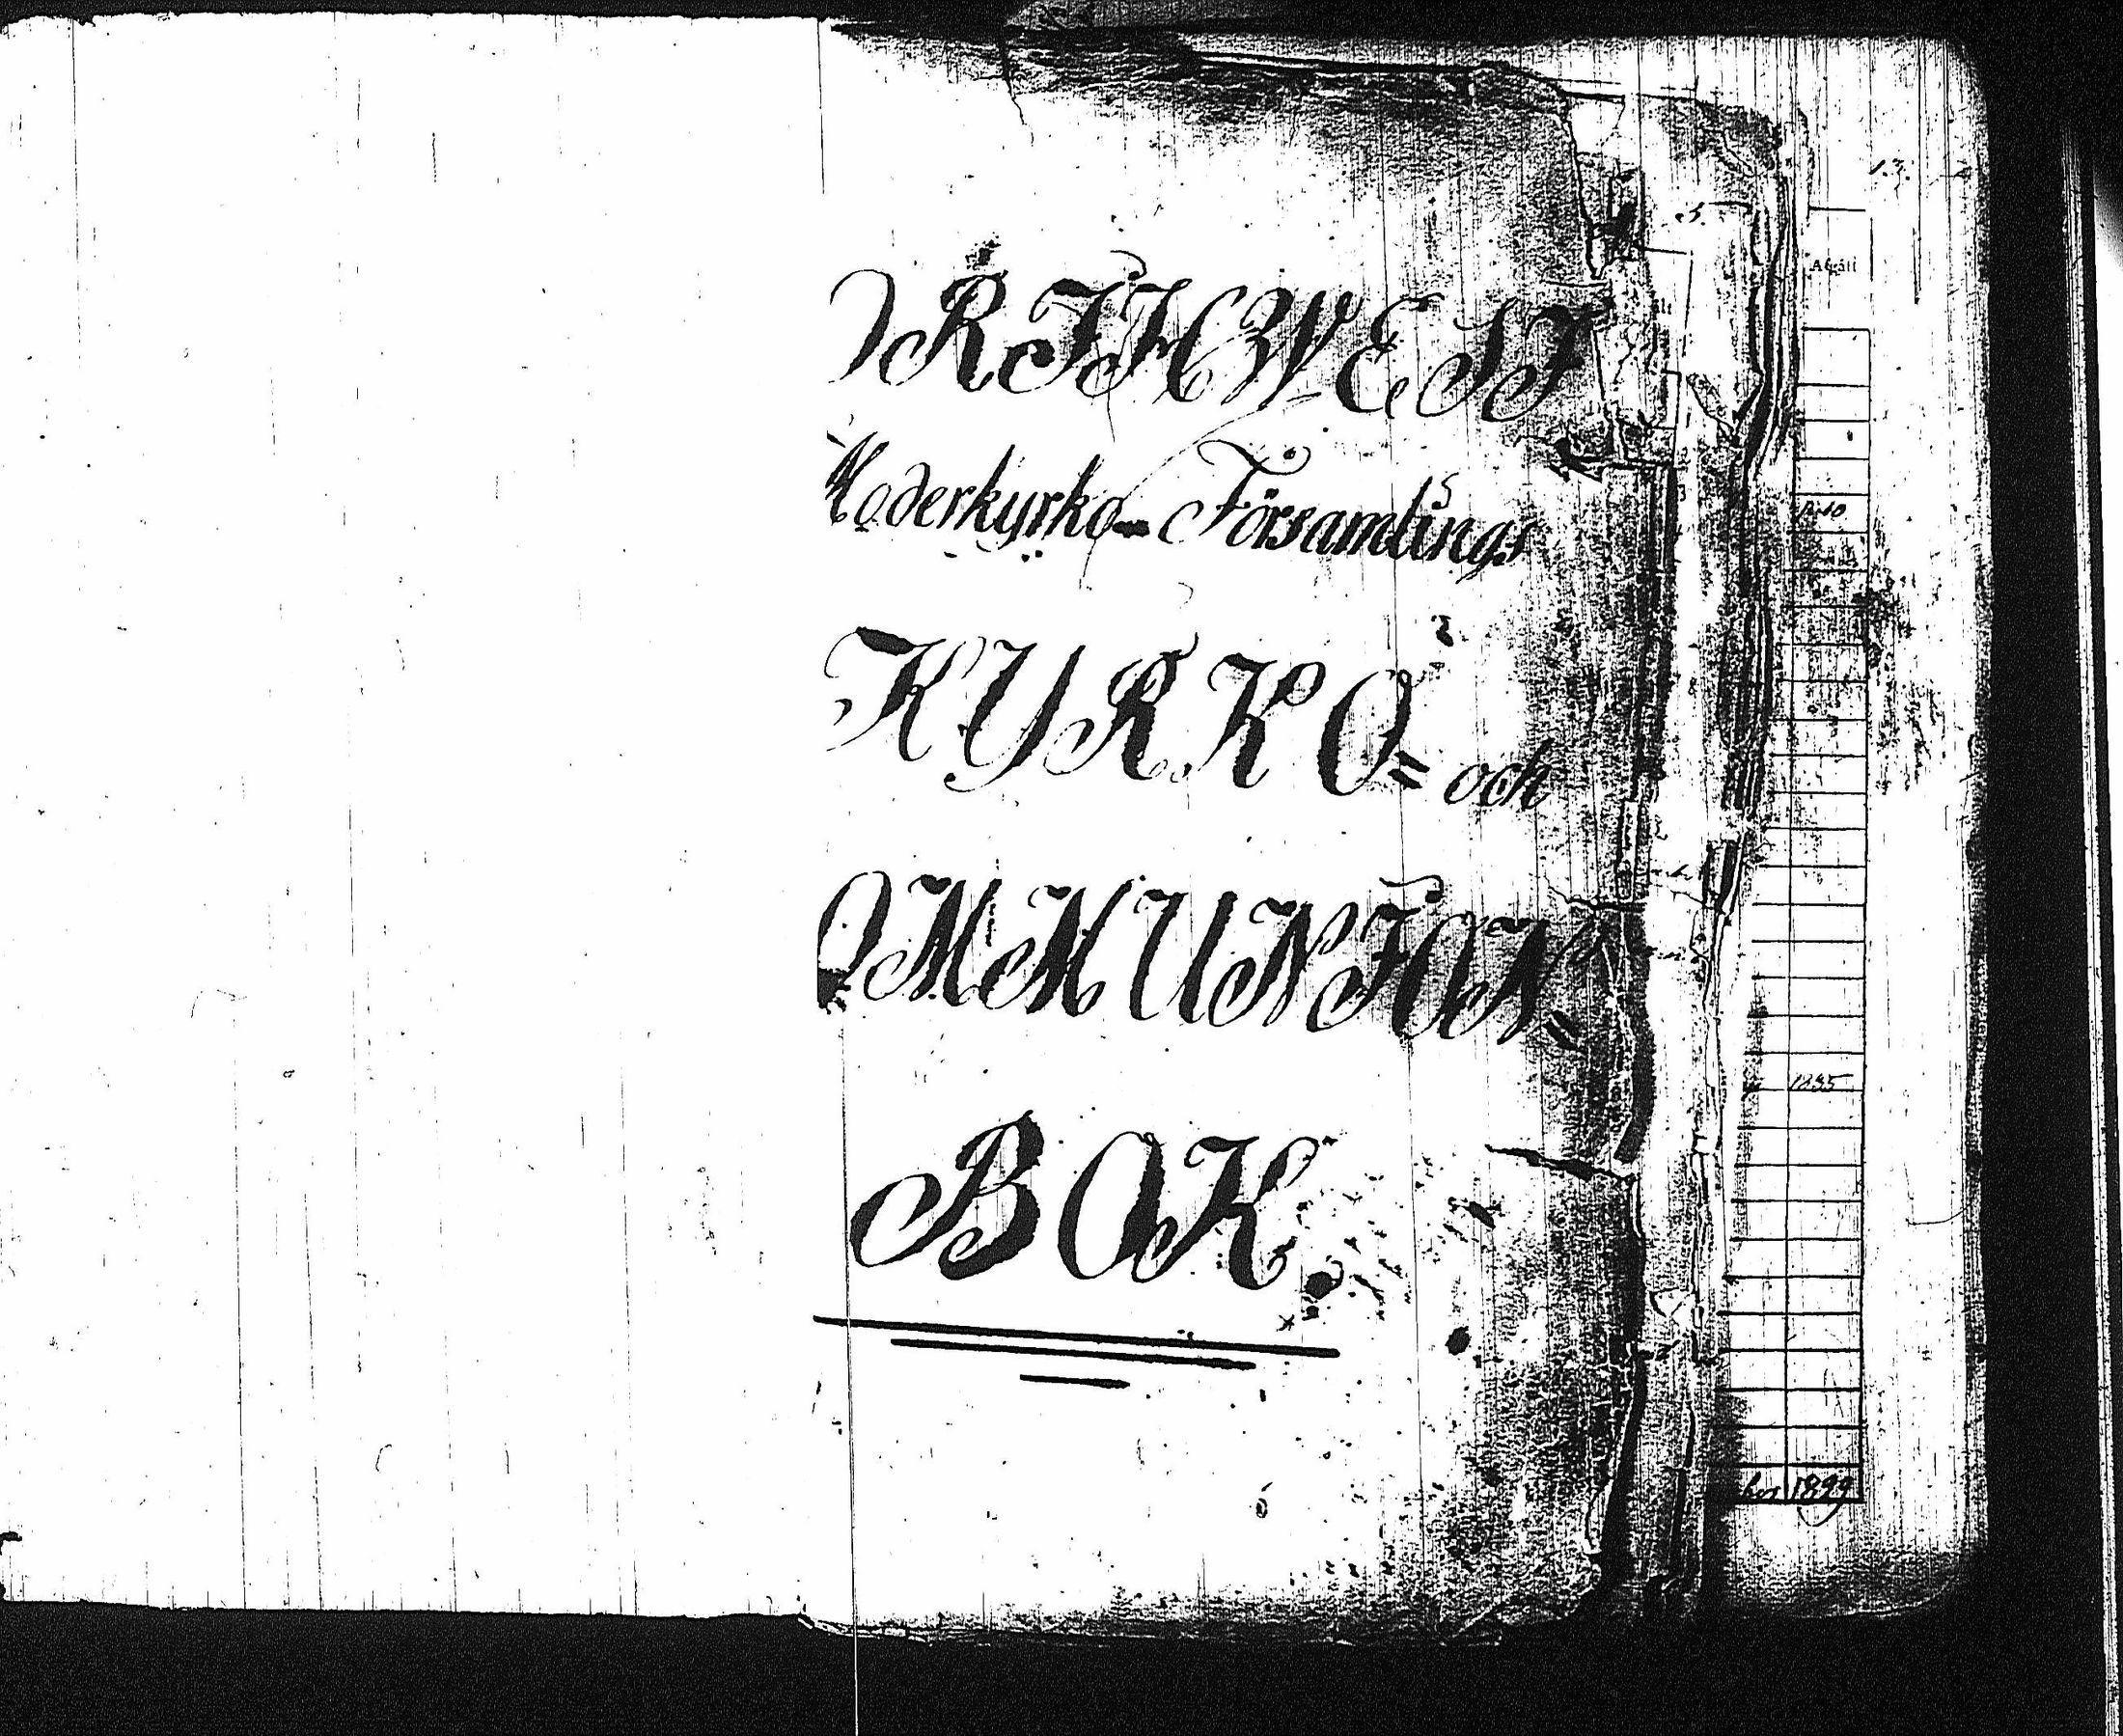 ÖRTHWEST
Moderkyrko- Församlings
KYRKO= och
OMMUNION=
BOK.
13.
Afgått
1895
1899